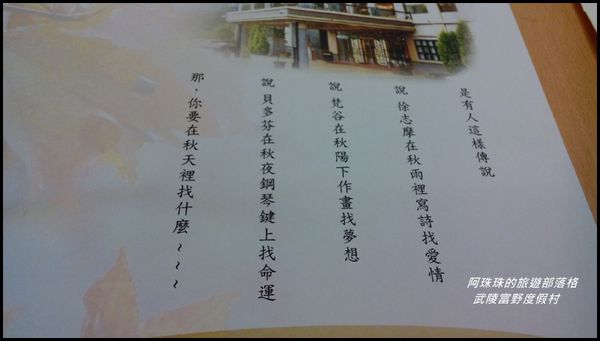 是有人這樣傳說
說 徐志摩在秋雨裡寫詩找愛情
說 梵谷在秋陽下作畫找夢想
說 貝多芬在秋夜鋼琴鍵上找命運
那，你要在秋天裡找什麼～～～
阿珠珠的旅遊部落格
武陵富野度假村